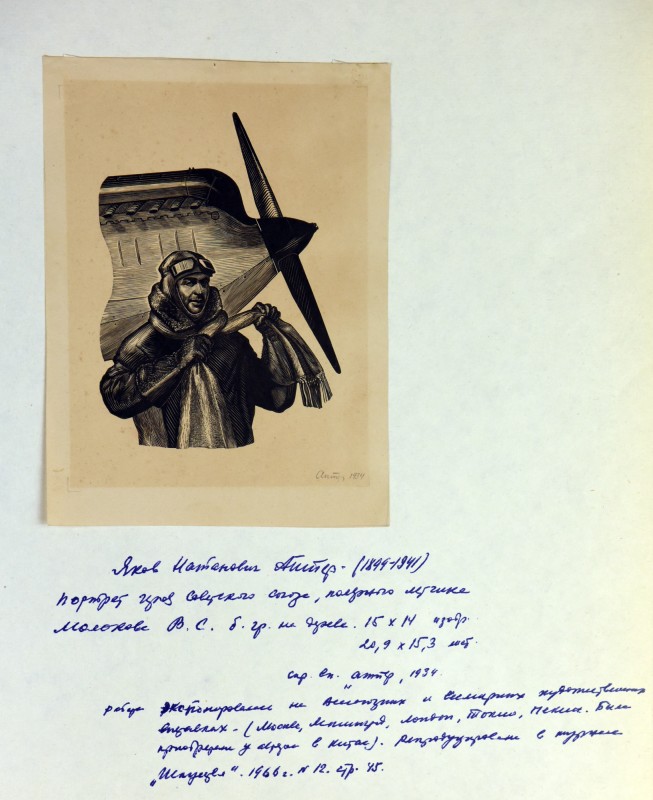 Аптер, 1934
Яков Натанович Аптер - (1899-1941)
Портрет героя Советского союза, полярного летчика
Молокова В. С. б. гр. на дереве. 15 x 14 изобр.
20,9 x 15,3 лист.
спр. вн. "Аптер, 1934.
работа экспонирована на Всесоюзных и всемирных художественных
выставках - (Москва, Ленинград, Лондон, Токио, Пекин. Была
приобретена у автора в Китае). Репродуцирована в журнале
1966 г. N 12. стр. 45.